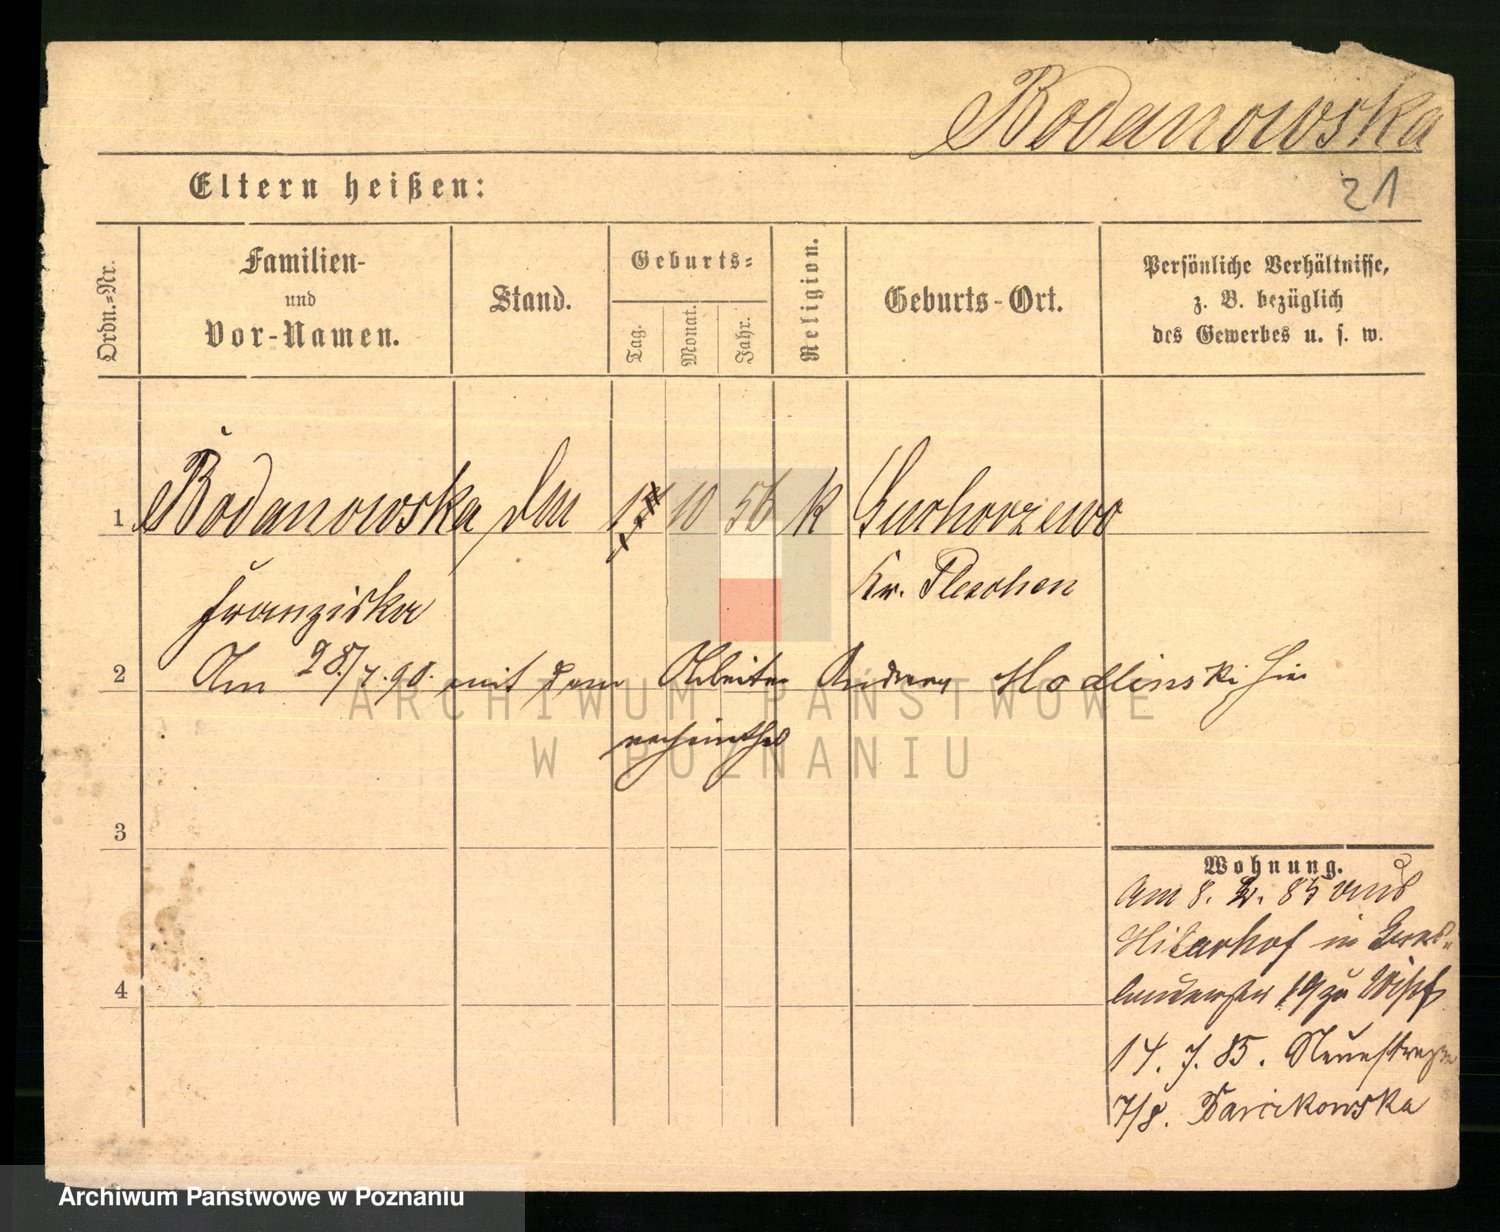 Bodanowska
21
Eltern heißen:
Ordn.-Nr.
Familien-
und
Vor-Namen.
Stand.
Geburts-
Tag.
Monat.
Jahr.
Religion.
Geburts-Ort.
Persönliche Verhältnisse,
z. B. bezüglich
des Gewerbes u. s. w.
1 Bodanowska 10 56 K Suchorzewo
Franziska Kr. Pleschen
2 Am 28/7.90. mit dem Arbeiter Andreas Modlinski hier
verheirathet
3
4
Wohnung.
Am 8. 2. 85 aus
in
19 zu
14. 7. 85. Neuestraße
7/8. Barcikowska
ARCHIWUM PAŃSTWOWE
W POZNANIU
Archiwum Państwowe w Poznaniu